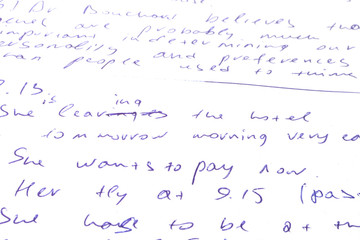 Dr Bouchard believes
are probably much
important in determining our
personality and preferences
than people used to think
2.15
is ing
She leavings the hotel
tommorow morning very
She wants to pay now.
Her fly at 9.15 (pas
She have to be at th